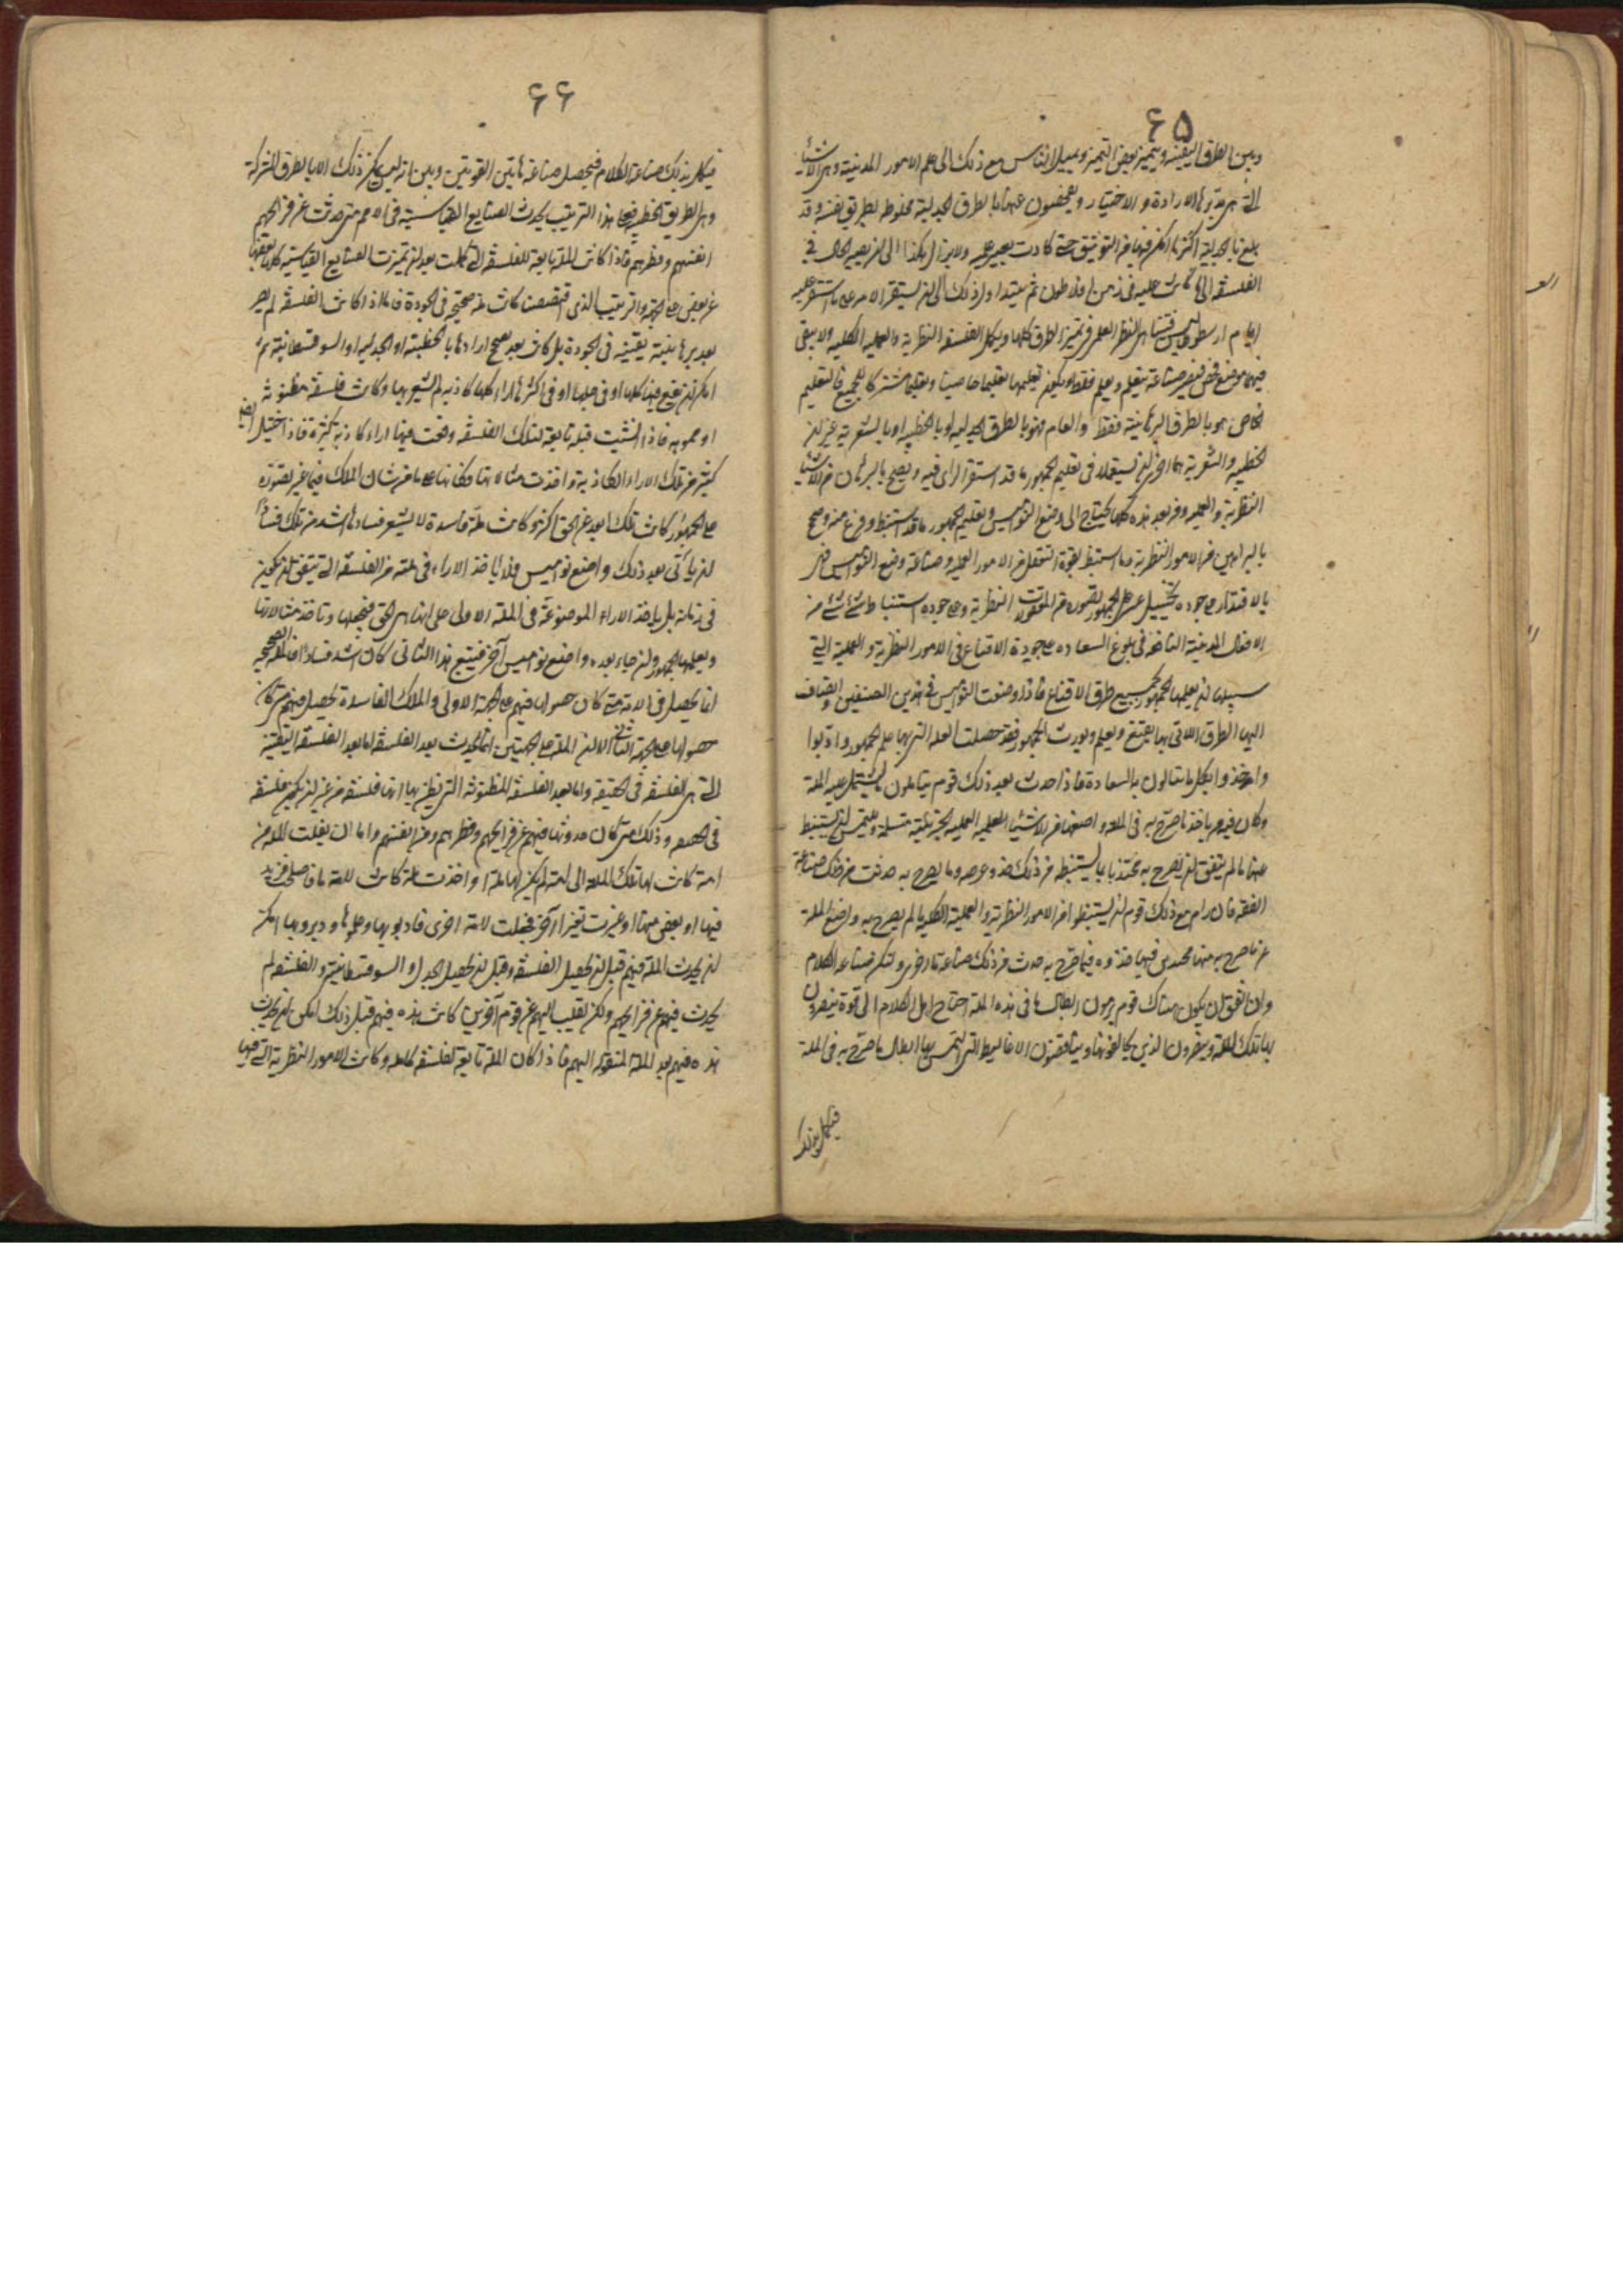 ۶۵
وبين الطرق اليقينية ويتميز بعض التميز ويميل الناس مع ذلك الى علم الامور المدنية وهى الاشياء
التى مبدؤها الارادة والاختيار ويفحصون عنها بالطرق الجدلية مخلوطة بطريق يقينية وقد
بلغ بالجدلية اكثر ما امكن فيها من التوثيق حتى كادت تصير علمية ولا يزال هكذا الى ان يصير الحال فى
الفلسفة الى ما كانت عليه فى زمن افلاطون ثم يتداول ذلك الى ان يستقر الامر على ما استقر عليه
ايام ارسطوطاليس فيتناهى النظر العلمى وتميز الطرق كلها ويكمل الفلسفة النظرية والعملية الكلية ولا يبقى
فيها موضع فحص فتصير صناعة يتعلم ويعلم فقط ويكون تعليمها تعليما خاصيا وتعليما مشتركا للجميع فالتعليم
الخاص هو بالطرق البرهانية فقط والعام فهو بالطرق الجدلية او بالخطبية او بالشعرية غير ان
الخطبية والشعرية هما احرى ان يستعملا فى تعليم الجمهور ما قد استقر الراى فيه ويصح بالبرهان من الاشياء
النظرية والعملية ومن بعد هذه كلها يحتاج الى وضع النواميس وتعليم الجمهور ما قد استنبط وفرغ منه وصحح
بالبراهين من الامور النظرية وما استنبط بقوة التعقل من الامور العملية وصناعة وضع النواميس فهى
بالاقتدار على جودة تخييل ما عسر على الجمهور تصوره من المعقولات النظرية وعلى جودة استنباط شئ شئ من
الافعال المدنية النافعة فى بلوغ السعادة وعلى جودة الاقناع فى الامور النظرية والعملية التى
سبيلها ان يعلمها الجمهور بجميع طرق الاقناع فاذا وضعت النواميس فى هذين الصنفين وانضاف
اليها الطرق التى بها يقنع ويعلم ويؤدب الجمهور فقد حصلت الملة التى بها علم الجمهور وادبوا
واخذوا بكل ما ينالون به السعادة فاذا حدث بعد ذلك قوم يتاملون ما يشتمل عليه الملة
وكان فيهم من ياخذ ما صرح به فى الملة واضعها من الاشياء العملية الجزئية مسلمة ويلتمس ان يستنبط
عنها ما لم يتفق ان يصرح به محتذيا بما يستنبط من ذلك حذو غرضه وما يصرح به حدثت من ذلك صناعة
الفقه فان رام مع ذلك قوم ان يستنبطوا من الامور النظرية والعملية الكلية ما لم يصرح به واضع الملة
غير ما صرح به منها محتذين فيها حذوه فيما صرح به حدث من ذلك صناعة ما اخرى وتلك صناعة الكلام
وان اتفق ان يكون هناك قوم يرومون ابطال ما فى هذه الملة احتاج اهل الكلام الى قوة ينصرون
بها تلك الملة وينصرون الذين يخالفونها ويناقضون الاغاليط التى التمس بها ابطال ما صرح به فى الملة
فيكمل بذلك
۶۶
فيكمل بذلك صناعة الكلام فيحصل صناعة هاتين القوتين وبين انه ليس يمكن ذلك الا بالطرق المشتركة
وهى الطريق الخطبية فعلى هذا الترتيب يحدث الصنايع القياسية فى الامم متى حدثت عن قرائحهم
انفسهم وفطرهم فاذا كانت الملة تابعة للفلسفة التى كملت بعد ان تميزت الصنايع القياسية كلها بعضها
عن بعض على الجهة والترتيب الذى اقتضينا كانت ملة صحيحة فى الجودة فاما اذا كانت الفلسفة لم تصر
بعد برهانية يقينية فى الجودة بل كانت بعد تصحح اراؤها بالخطبية او الجدلية او السوفسطائية لم
امكن ان يقع فيها كلها او فى جلها او فى اكثرها آراء كلها كاذبة لم يشعر بها وكانت فلسفة مظنونة
او مموهة فاذا انشئت ملة تابعة لتلك الفلسفة وقعت فيها اراء كاذبة كثيرة فاذا اخذ ايضا
كثير من تلك الاراء الكاذبة واخذت مثالاتها مكانها على ما هو شان الملة فيما عسر تصوره
على الجمهور كانت تلك ابعد عن الحق اكثر وكانت ملة فاسدة لا يشعر فسادها واشد من تلك فسادا
ان ياتى بعد ذلك واضع نواميس فلا ياخذ الاراء فى ملته من الفلسفة التى يتفق ان يكون
فى زمانه بل ياخذ الاراء الموضوعة فى الملة الاولى على انها هى الحق فيحصلها وياخذ مثالاتها
ويعلمها الجمهور وان جاء بعده واضع نواميس آخر فيتبع هذا الثانى كان اشد فسادا فالملة الصحيحة
انما يحصل فى الامة متى كان حصولها فيهم على الجهة الاولى والملة الفاسدة يحصل فيهم متى كان
حصولها على الجهة الثانية الا ان الملة على الجهتين انما تحدث بعد الفلسفة اما بعد الفلسفة اليقينية
التى هى الفلسفة فى الحقيقة واما بعد الفلسفة المظنونة التى يظن بها انها فلسفة من غير ان يكون فلسفة
فى الحقيقة وذلك متى كان حدوثها فيهم عن قرائحهم وفطرهم ومن انفسهم واما ان نقلت الملة من
امة كانت لها تلك الملة الى امة لم يكن لها ملة او اخذت ملة كانت لامة فاصلحت فزيد
فيها او بعض منها او غيرت تغيرا آخر فجعلت لامة اخرى فادبوا بها وعلموها ودبروا بها امكن
ان يحدث الملة فيهم قبل ان يحصل الفلسفة وقبل ان يحصل الجدل والسوفسطائية والفلسفة لم
يحدث فيهم عن قرائحهم ولكن نقلت اليهم عن قوم آخرين كانت هذه فيهم قبل ذلك امكن ان يحدث
هذه فيهم بعد الملة المنقولة اليهم فاذا كان الملة تابعة لفلسفة كاملة وكانت الامور النظرية التى فيها